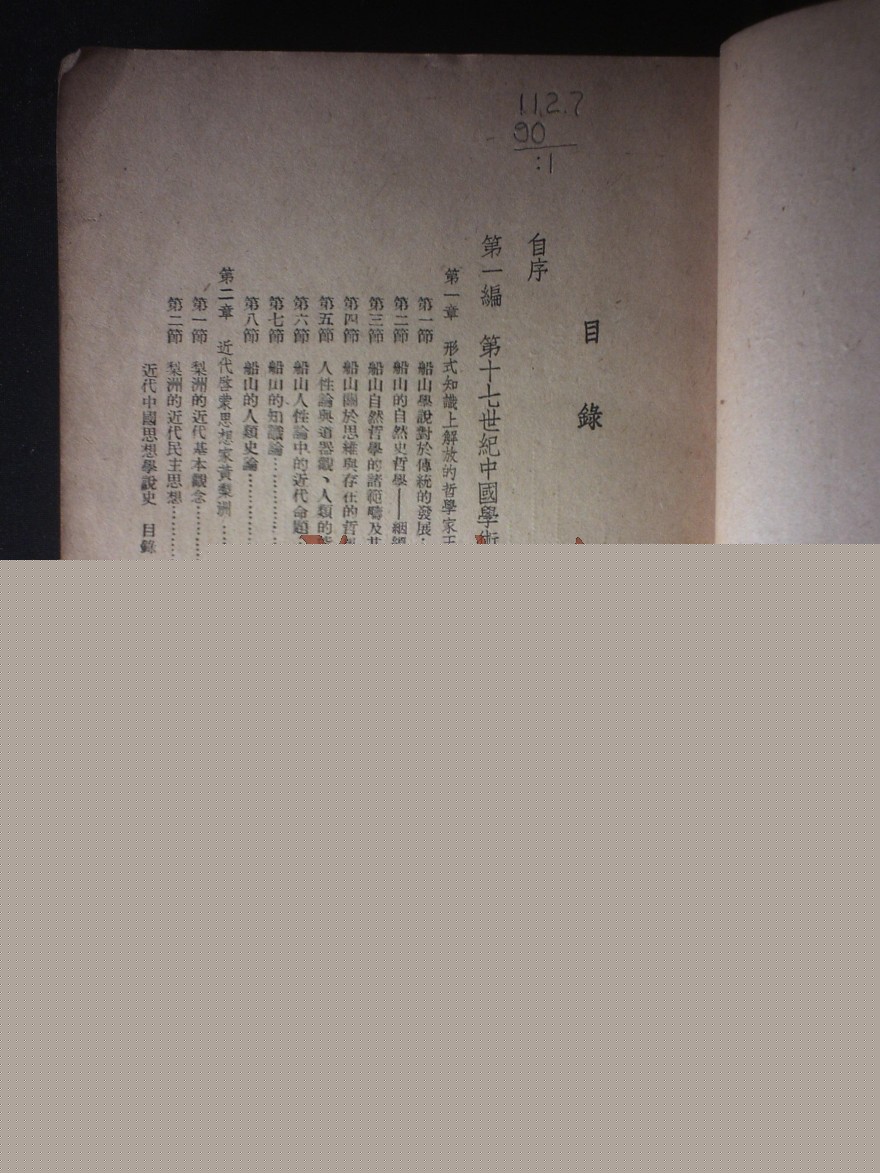 11.2.7
90
:1
目錄
自序
第一編 第十七世紀中國學術
第一章 形式知識上解放的哲學家王
第一節 船山學說對於傳統的發展
第二節 船山的自然史哲學——絪縕
第三節 船山自然哲學的諸範疇及其
第四節 船山關於思維與存在的哲
第五節 人性論與道器觀、人類的
第六節 船山人性論中的近代命題
第七節 船山的知識論……………
第八節 船山的人類史論……………
第二章 近代啓蒙思想家黃梨洲……
第一節 梨洲的近代基本觀念……………
第二節 梨洲的近代民主思想……………
近代中國思想學說史 目錄